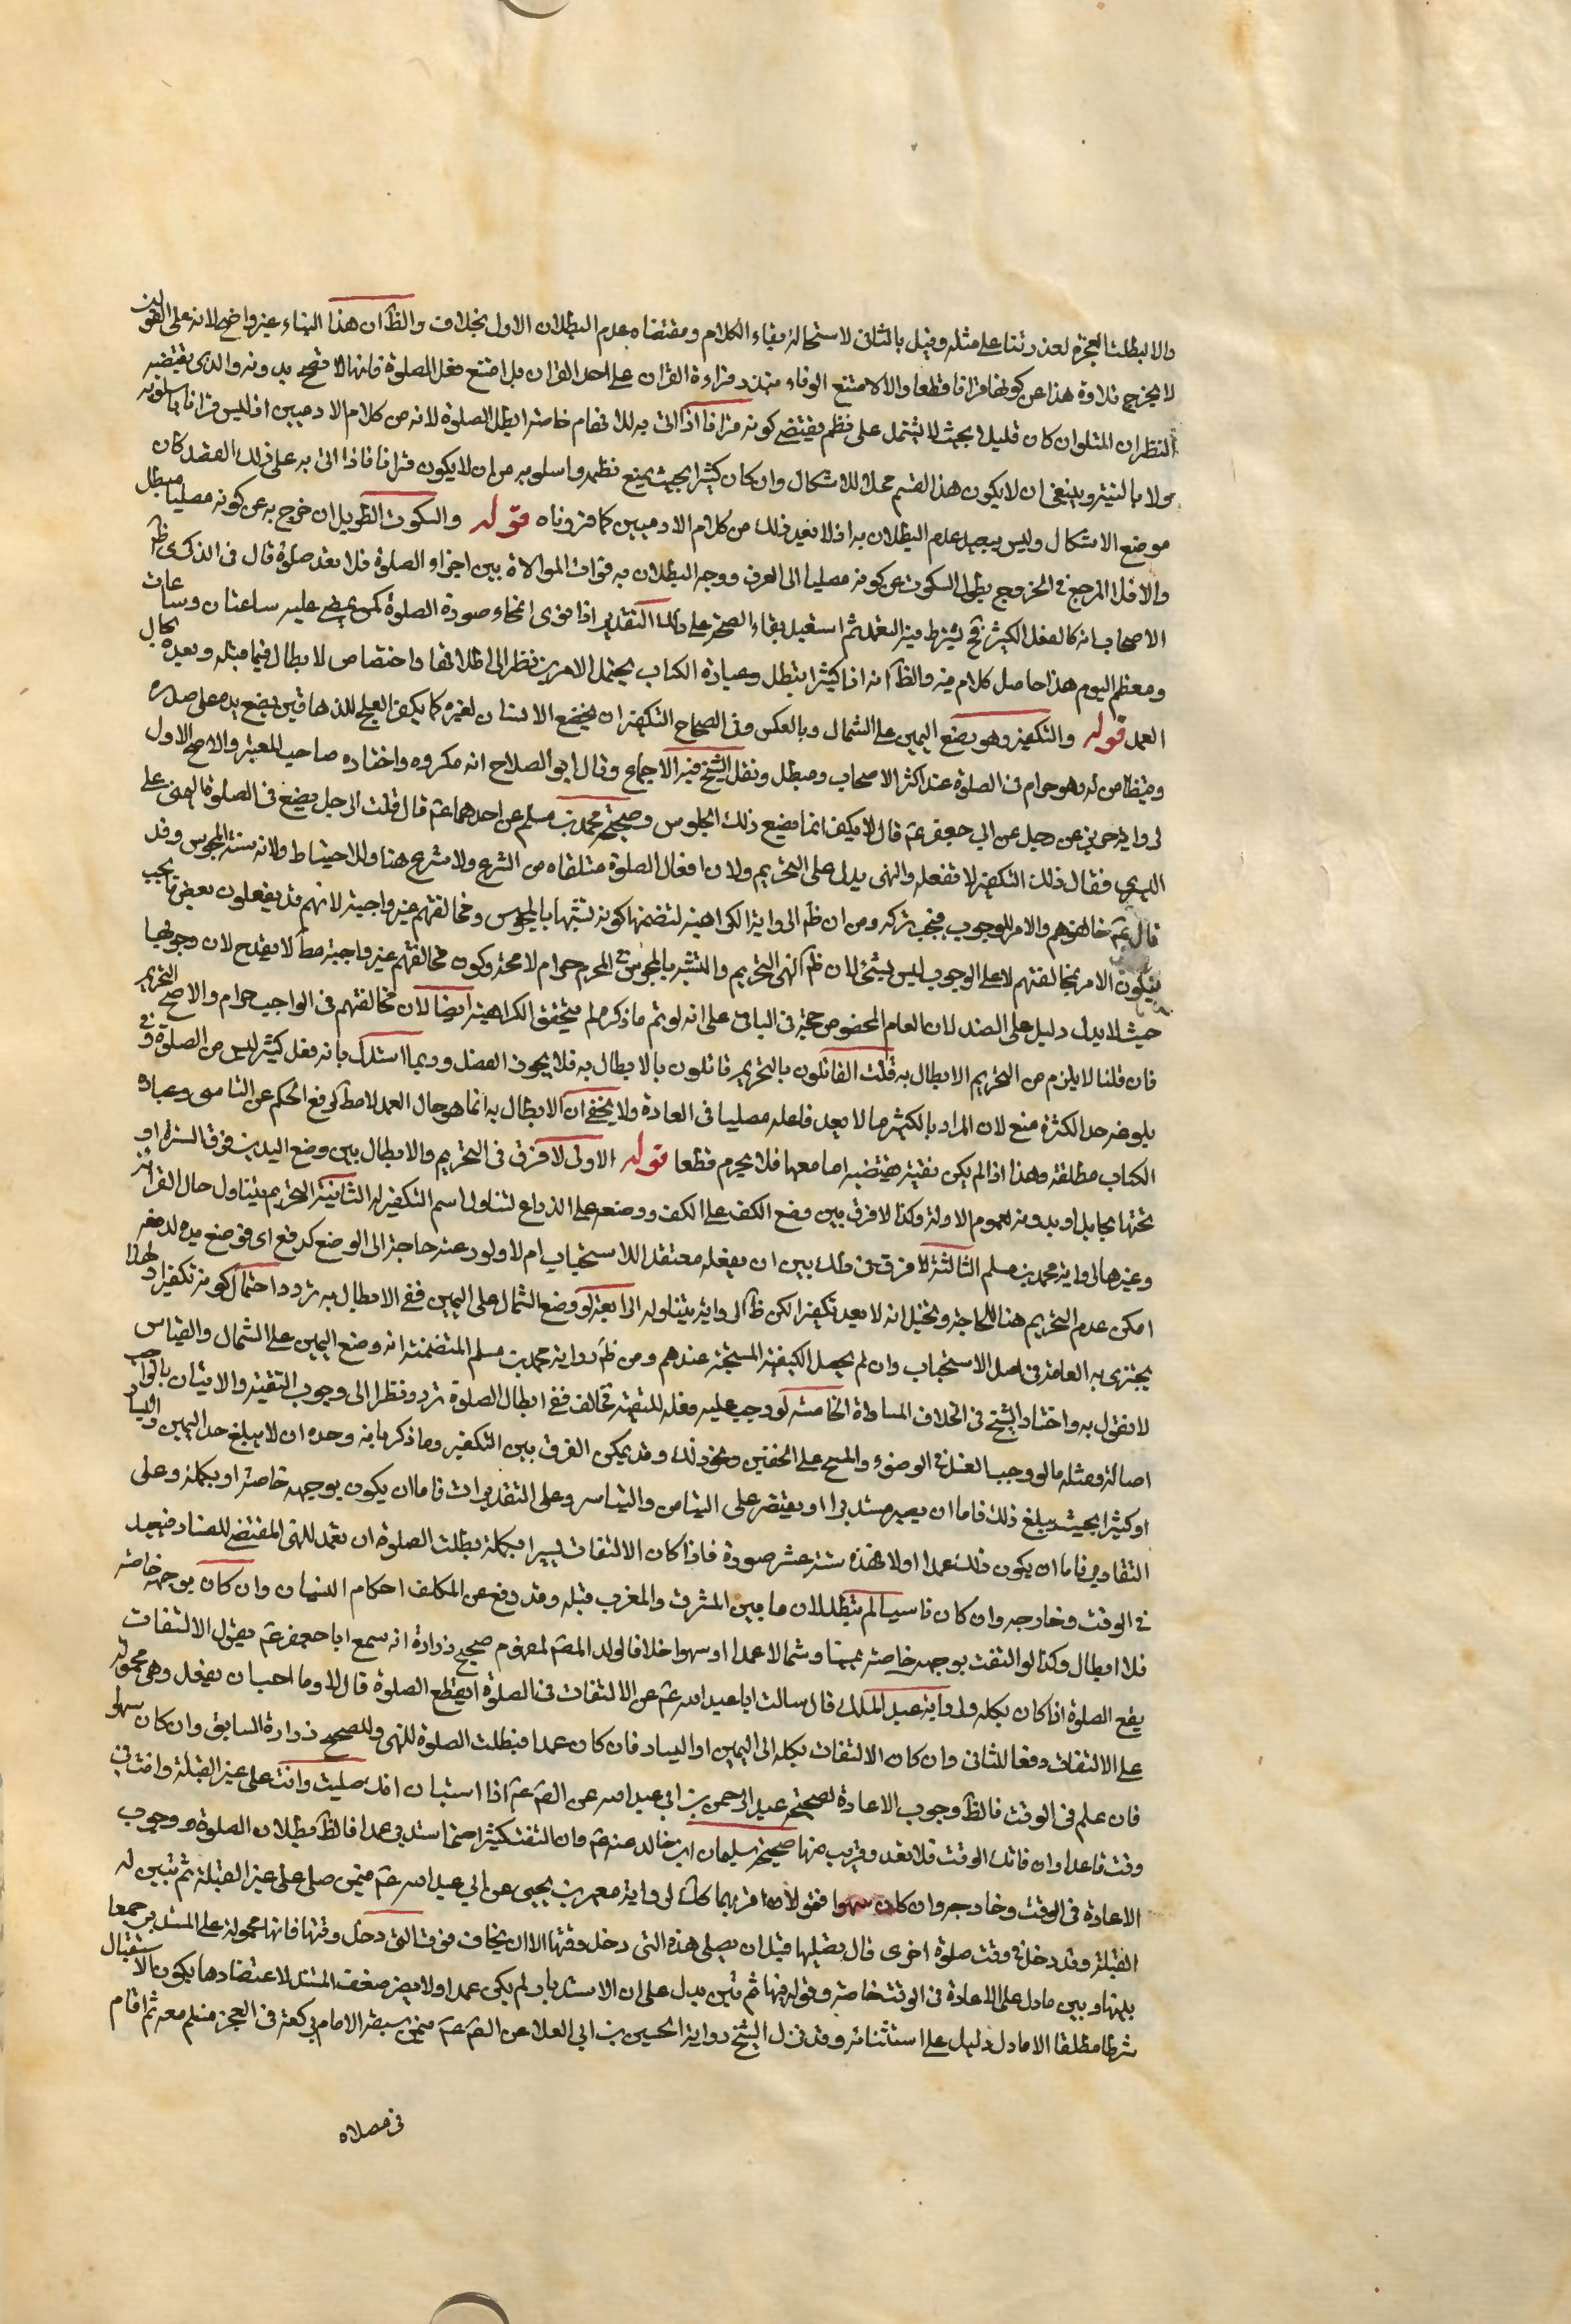 والا لبطلت العجزه لعذرتنا على مثله وقيل بالثانى لاستحالة بقاء الكلام ومقتضاه عدم البطلان الاول بخلاف والظآ ان هذا البناء غير واضح لانه على القولين
لا يخرج تلاوة هذا عن كونها قرانا قطعا والا لامتنع الوفاء بنذر قراءة القران على احد القران بل امتنع فعل الصلوة فانها لا تصح بدونه والذى يقتضيه
النظر ان المتلو ان كان قليلا بحيث لا يشتمل على نظم يقتضى كونه قرانا اذا اتى به للافهام خاصة ابطل الصلوة لانه من كلام الادميين اذ ليس قرانا باسلوبه
ولا بالنية وينبغى ان لا يكون هذا القسم محلا للاشكال وان كان كثيرا بحيث يمنع نظمه واسلوبه من ان لا يكون قرانا فاذا اتى به على ذلك القصد كان
موضع الاشكال وليس ببعيد عدم البطلان به اذ لا يعد ذلك من كلام الادميين كما قررناه قوله والسكوت الطويل ان خرج به عن كونه مصليا مبطل
والا فلا المرجع فى الخروج بطول السكوت عن كونه مصليا الى العرف ووجه البطلان به فوات الموالاة بين اجزاء الصلوة فلا يعد صلوة قال فى الذكرى ظآ
الاصحاب انه كالفعل الكثير فح يشترط فيه التعمد ثم استبعد بقاء الصحة على ذلك التقدير اذا ادى انمحاء صورة الصلوة كمن يمضى عليه ساعتان وساعات
ومعظم اليوم هذا حاصل كلامه فيه والظآ انه اذا كثيرا يبطل وعبارة الكتاب يحتمل الامرين نظرا الى اطلاقها واختصاص لابطال فيما قبله وبعده بحال
العمد قوله والتكفير وهو وضع اليمين على الشمال وبالعكس وفى الصحاح التكفير ان يخضع الانسان لغيره كما يكفر العلج للدهاقين يضع يده على صدره
ويتطامن له وهو حرام فى الصلوة عند اكثر الاصحاب ومبطل ونقل الشيخ فيه الاجماع وقال ابو الصلاح انه مكروه واختاره صاحب المعتبر والاصح الاول
لرواية حريز عن رجل عن ابى جعفر عم قال لا يكفر انما يصنع ذلك المجوس وصحيحة محمد بن مسلم عن احدهما عم قال قلت الرجل يضع فى الصلوة اليمنى على
اليسرى فقال ذلك التكفير لا تفعله والنهى يدل على التحريم ولان افعال الصلوة متلقاه من الشرع ولا شرع هنا وللاحتياط ولانه سنة المجوس وقد
قال عم خالفوهم والامر للوجوب فيجب تركه ومن ان ظآ الرواية الكراهية لتضمنها كونه تشبها بالمجوس ومخالفتهم غير واجبة لانهم قد يفعلون بعض ما يجب
فيكون الامر بمخالفتهم لا على الوجوب ليس بشئ لان ظآ النهى التحريم والتشبه بالمجوس المحرم حرام لا محة وكون مخالفتهم غير واجبة مطآ لا يقدح لان وجوبها
حيث لا يدل دليل على الضد لان العام المخصوص حجة فى الباقى على انه لو تم ما ذكر لم يتحقق الكراهية ايضا لان مخالفتهم فى الواجب حرام والاصح التحريم
فان قلنا لا يلزم من التحريم الابطال به قلت القائلون بالتحريم قائلون بالابطال به فلا يجوز الفصل وربما استدل بانه فعل كثير ليس من الصلوة وفى
بلوغه حد الكثرة منع لان المراد بالكثير ما لا يعد فاعله مصليا فى العادة ولا يخفى ان الابطال به انما هو حال العمد لا مطآ لرفع الحكم عن الناسى وعبارة
الكتاب مطلقة وهذا اذا لم يكن تقية يقتضيه اما معها فلا يحرم قطعا قوله الاولى لا فرق فى التحريم والابطال بين وضع اليدين فوق السرة او
تحتها بحايل او بدونه لعموم الادلة وكذا لا فرق بين وضع الكف على الكف ووضعه على الذراع لتناول اسم التكفير له الثانية التحريم يتناول حال القرائة
وغيرها لرواية محمد بن مسلم الثالثة لا فرق فى ذلك بين ان يفعله معتقدا للاستحباب ام لا ولو دعته حاجة الى الوضع كدفع اذى فوضع يده لدفعه
امكن عدم التحريم هنا للحاجة ويحتمل انه لا يعد تكفيرا لكن ظآ الرواية يتناوله الرابعة لو وضع الشمال على اليمين ففى الابطال به تردد احتمال كونه تكفيرا ولهذا
يجتزى به العامة فى اصل الاستحباب وان لم يحصل الكيفية المستحبة عندهم ومن ظآ رواية محمد بن مسلم المتضمنة انه وضع اليمين على الشمال والقياس
لا نقول به واختار الشيخ فى الخلاف المساواة الخامسة لو وجب عليه فعله للتقية فخالف ففى ابطال الصلوة تردد ونظرا الى وجوب التقية والاتيان بالواجب
اصالة ومثله ما لو وجب الغسل فى الوضوء والمسح على الخفين ونحو ذلك وقد يمكن الفرق بين التكفير وما ذكر بانه وحده ان لا يبلغ حد اليمين واليسار
او كثيرا بحيث يبلغ ذلك فاما ان يصير مستدبرا او يقتصر على التيامن والتياسر وعلى التقديرات فاما ان يكون بوجهه خاصة او بكله وعلى
التقادير فاما ان يكون ذلك عمدا اولا فهذه ستة عشر صورة فاذا كان الالتفات يسيرا بكله بطلت الصلوة ان تعمد للنهى المقتضى للفساد فيعيد
فى الوقت وخارجه وان كان ناسيا لم يبطل لان ما بين المشرق والمغرب قبلة وقد رفع عن المكلف احكام النسيان وان كان بوجهه خاصة
فلا ابطال وكذا لو التفت بوجهه خاصة يمينا وشمالا عمدا او سهوا خلافا لولد المصنف لمفهوم صحيح زرارة انه سمع ابا جعفر عم يقول الالتفات
يقطع الصلوة اذا كان بكله ولرواية عبد الملك قال سالت ابا عبد الله عم عن الالتفات فى الصلوة ايقطع الصلوة قال لا وما احب ان يفعل وهى محمولة
على الالتفات دفعا للثانى وان كان الالتفات بكله الى اليمين او اليسار فان كان عمدا فبطلت الصلوة للنهى وللصحيح زرارة السابق وان كان سهوا
فان علم فى الوقت فالظآ وجوب الاعادة لصحيحة عبد الرحمن بن ابى عبد الله عن الصم عم اذا استبان انك صليت وانت على غير القبلة وانت فى
وقت فاعد وان فاتك الوقت فلا تعد وقريب منها صحيحة سليمان ابن خالد عنه عم وان التفت كثيرا حتى استدبر عمدا فالظآ بطلان الصلوة ووجوب
الاعادة فى الوقت وخارجه وان كان سهوا فقولان اقربهما كك لرواية معمر بن يحيى عن ابى عبد الله عم فيمن صلى على غير القبلة ثم تبين له
القبلة وقد دخل فى وقت صلوة اخرى قال يصليها قبل ان يصلى هذه التى دخل وقتها الا ان يخاف فوت التى دخل وقتها فانها محمولة على المستدبر جمعا
بينها وبين ما دل على الاعادة فى الوقت خاصة وقوله فيها ثم تبين يدل على ان الاستدبار لم يكن عمدا ولا يضر ضعف السند لاعتضادها بكون الاستقبال
شرطا مطلقا الا ما دل دليل على استثنائه وقد نزل الشيخ رواية الحسين بن ابى العلا عن الصم عم فيمن سبقه الامام بركعة فى الفجر فسلم معه ثم اقام
فى مصلاه